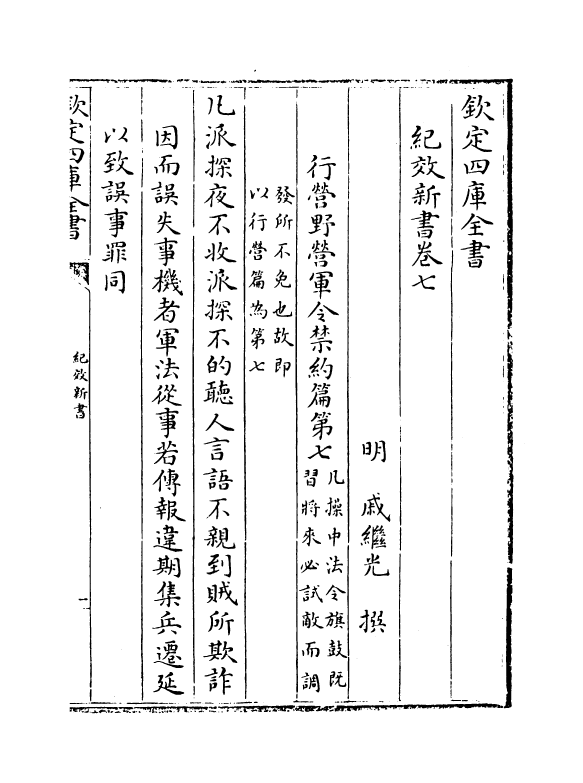 欽定四庫全書
紀效新書卷七
明 戚繼光 撰
行營野營軍令禁約篇第七
凡操中法令旗鼓既
習將來必試敵而調
發所不免也故即
以行營篇為第七
凡派探夜不收派探不的聽人言語不親到賊所欺詐
因而誤失事機者軍法從事若傳報違期集兵遷延
以致誤事罪同
欽定四庫全書
紀效新書
一